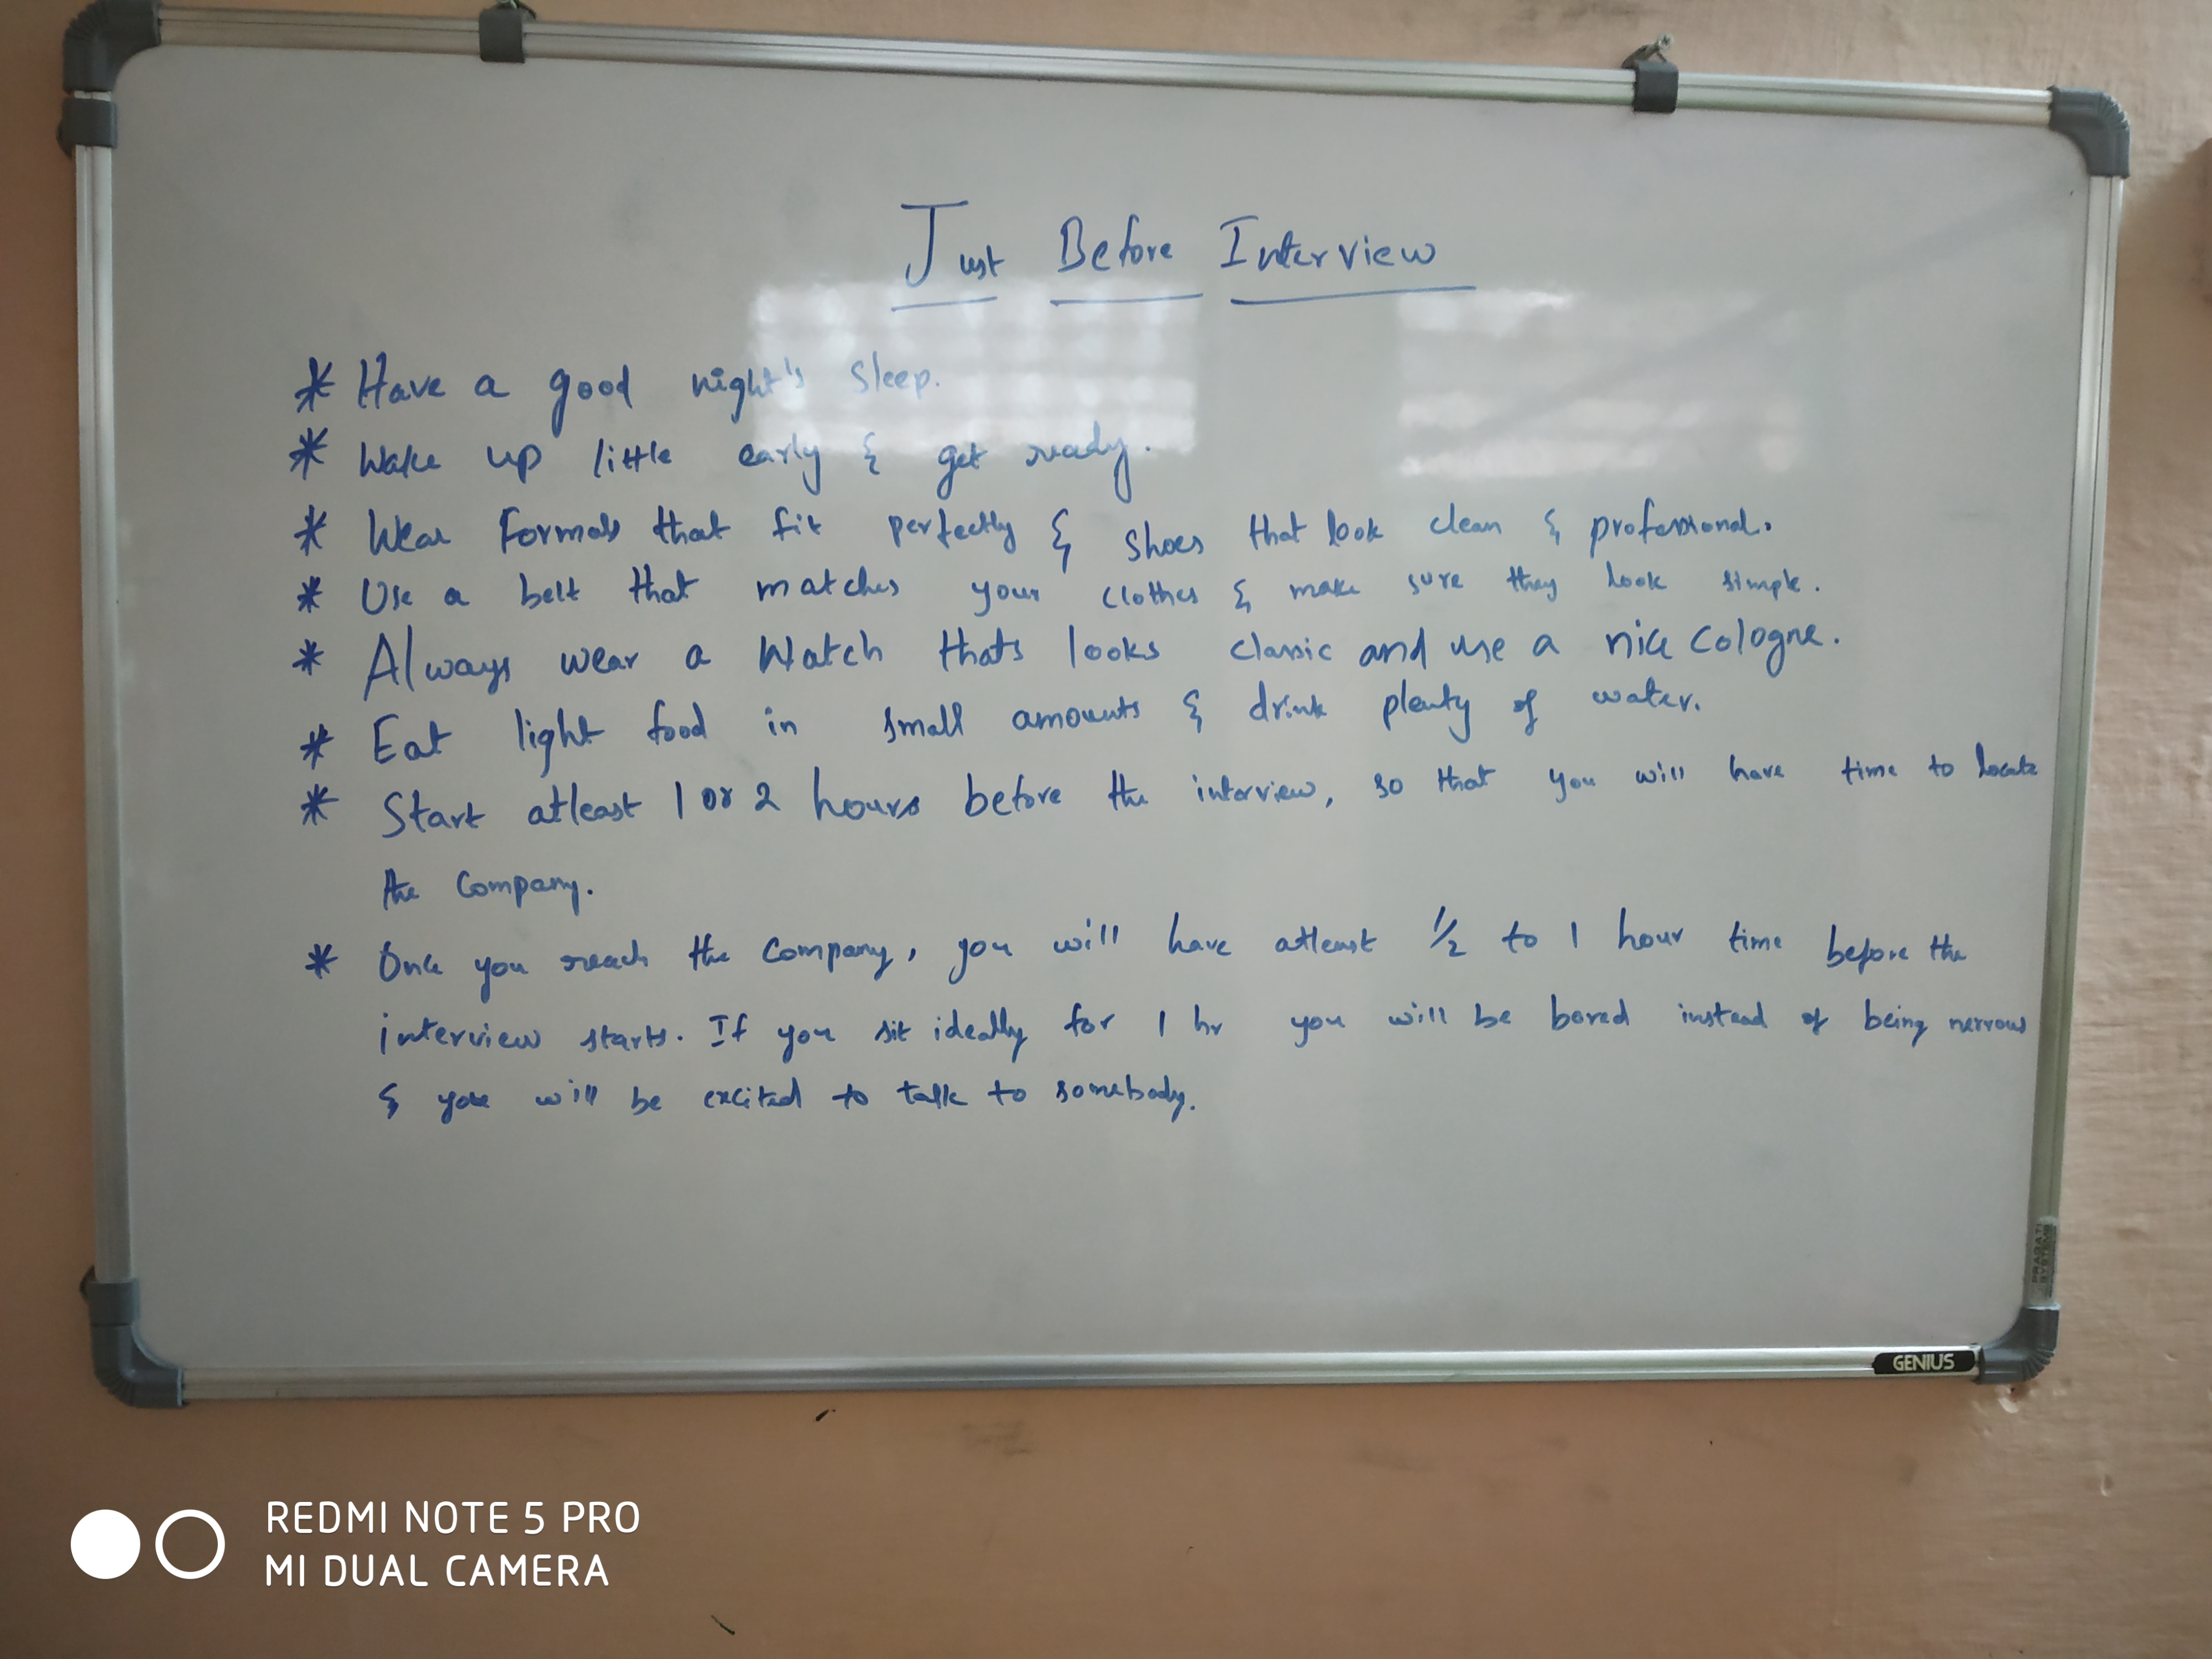 Just Before Interview
* Have a good night's sleep.
* Wake up little early & get ready.
* Wear Formals that fit perfectly & shoes that look clean & professional.
* Use a belt that matches your clothes & make sure they look simple.
* Always wear a Watch thats looks classic and use a nice cologne.
* Eat light food in small amounts & drink plenty of water.
* Start atleast 1 or 2 hours before the interview, so that you will have time to locate
the Company.
* Once you reach the Company, you will have atleast 1/2 to 1 hour time before the
interview starts. If you sit ideally for 1 hr you will be bored instead of being nervous
& you will be excited to talk to somebody.
PRAGATI SYSTEMS
GENIUS
REDMI NOTE 5 PRO
MI DUAL CAMERA